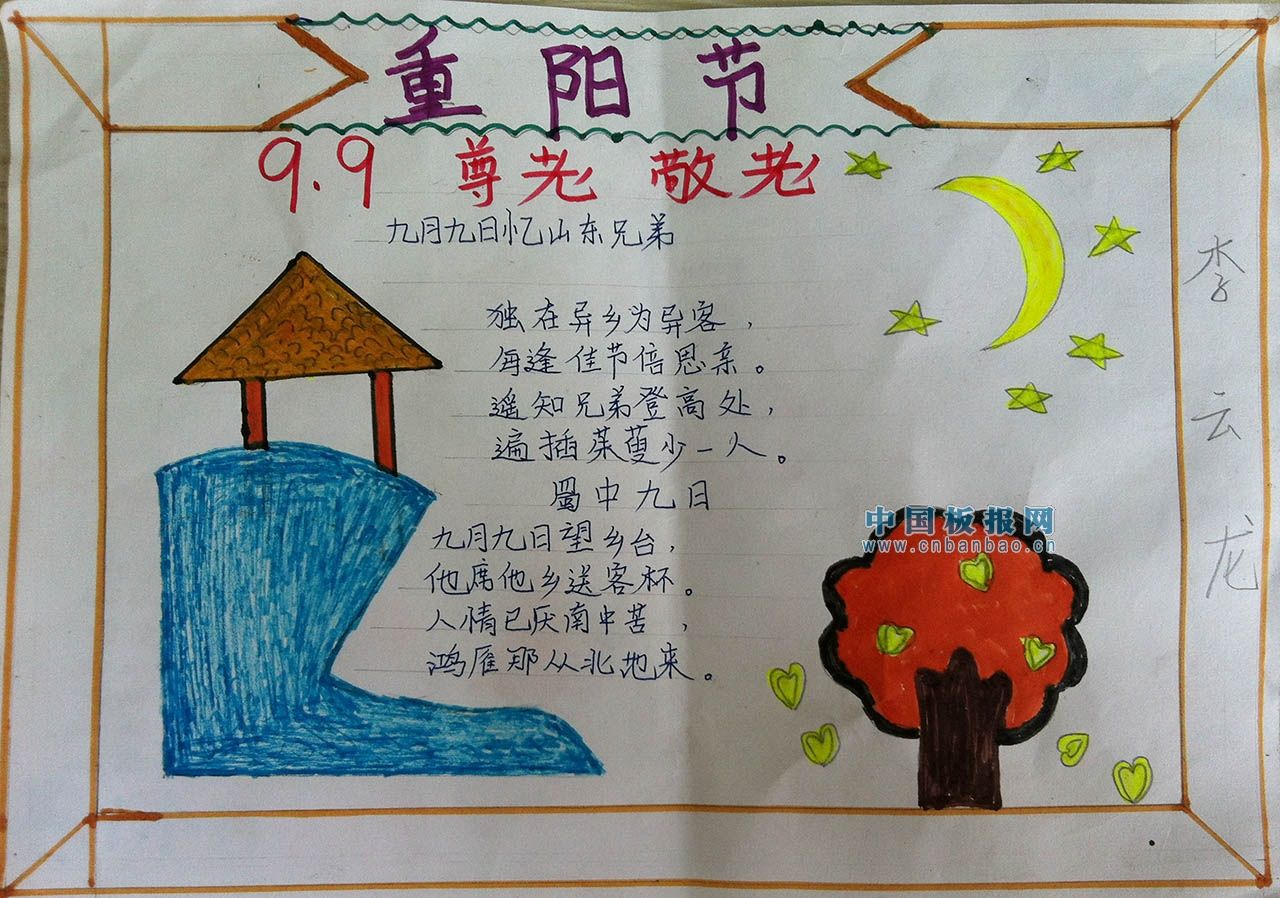 重阳节
9.9 尊老 敬老
九月九日忆山东兄弟
独在异乡为异客，
每逢佳节倍思亲。
遥知兄弟登高处，
遍插茱萸少一人。
蜀中九日
九月九日望乡台，
他席他乡送客杯。
人情已厌南中苦，
鸿雁那从北地来。
李云龙
中国板报网
www.cnbanbao.cn